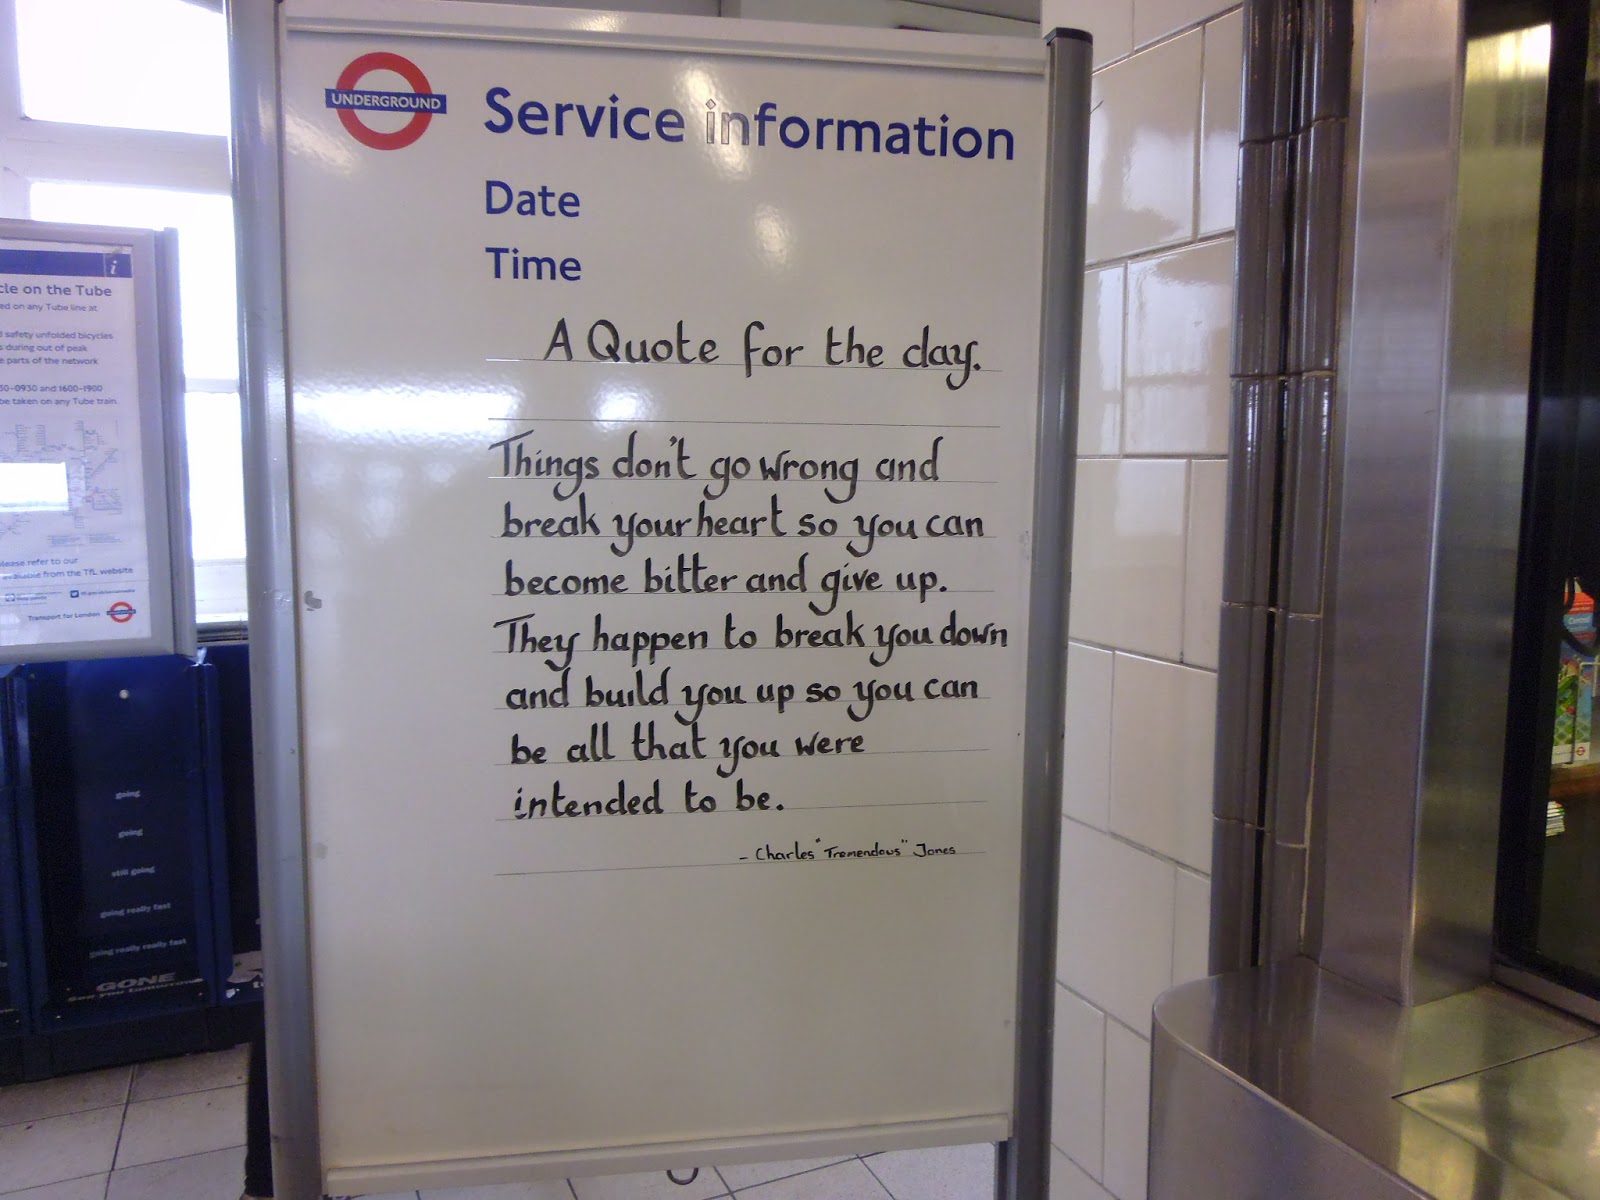 UNDERGROUND
Service information
Date
Time
A Quote for the day.
Things don't go wrong and
break your heart so you can
become bitter and give up.
They happen to break you down
and build you up so you can
be all that you were
intended to be.
- Charles "Tremendous" Jones
i
cle on the Tube
ed on any Tube line at
safety unfolded bicycles
s during out of peak
e parts of the network
30-0930 and 1600-1900
be taken on any Tube train.
please refer to our
available from the TfL website
Transport for London
going
going
still going
going really fast
going really really fast
GONE
See you tomorrow